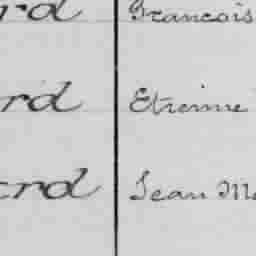 rd François
rd Etienne
ard Jean Ma